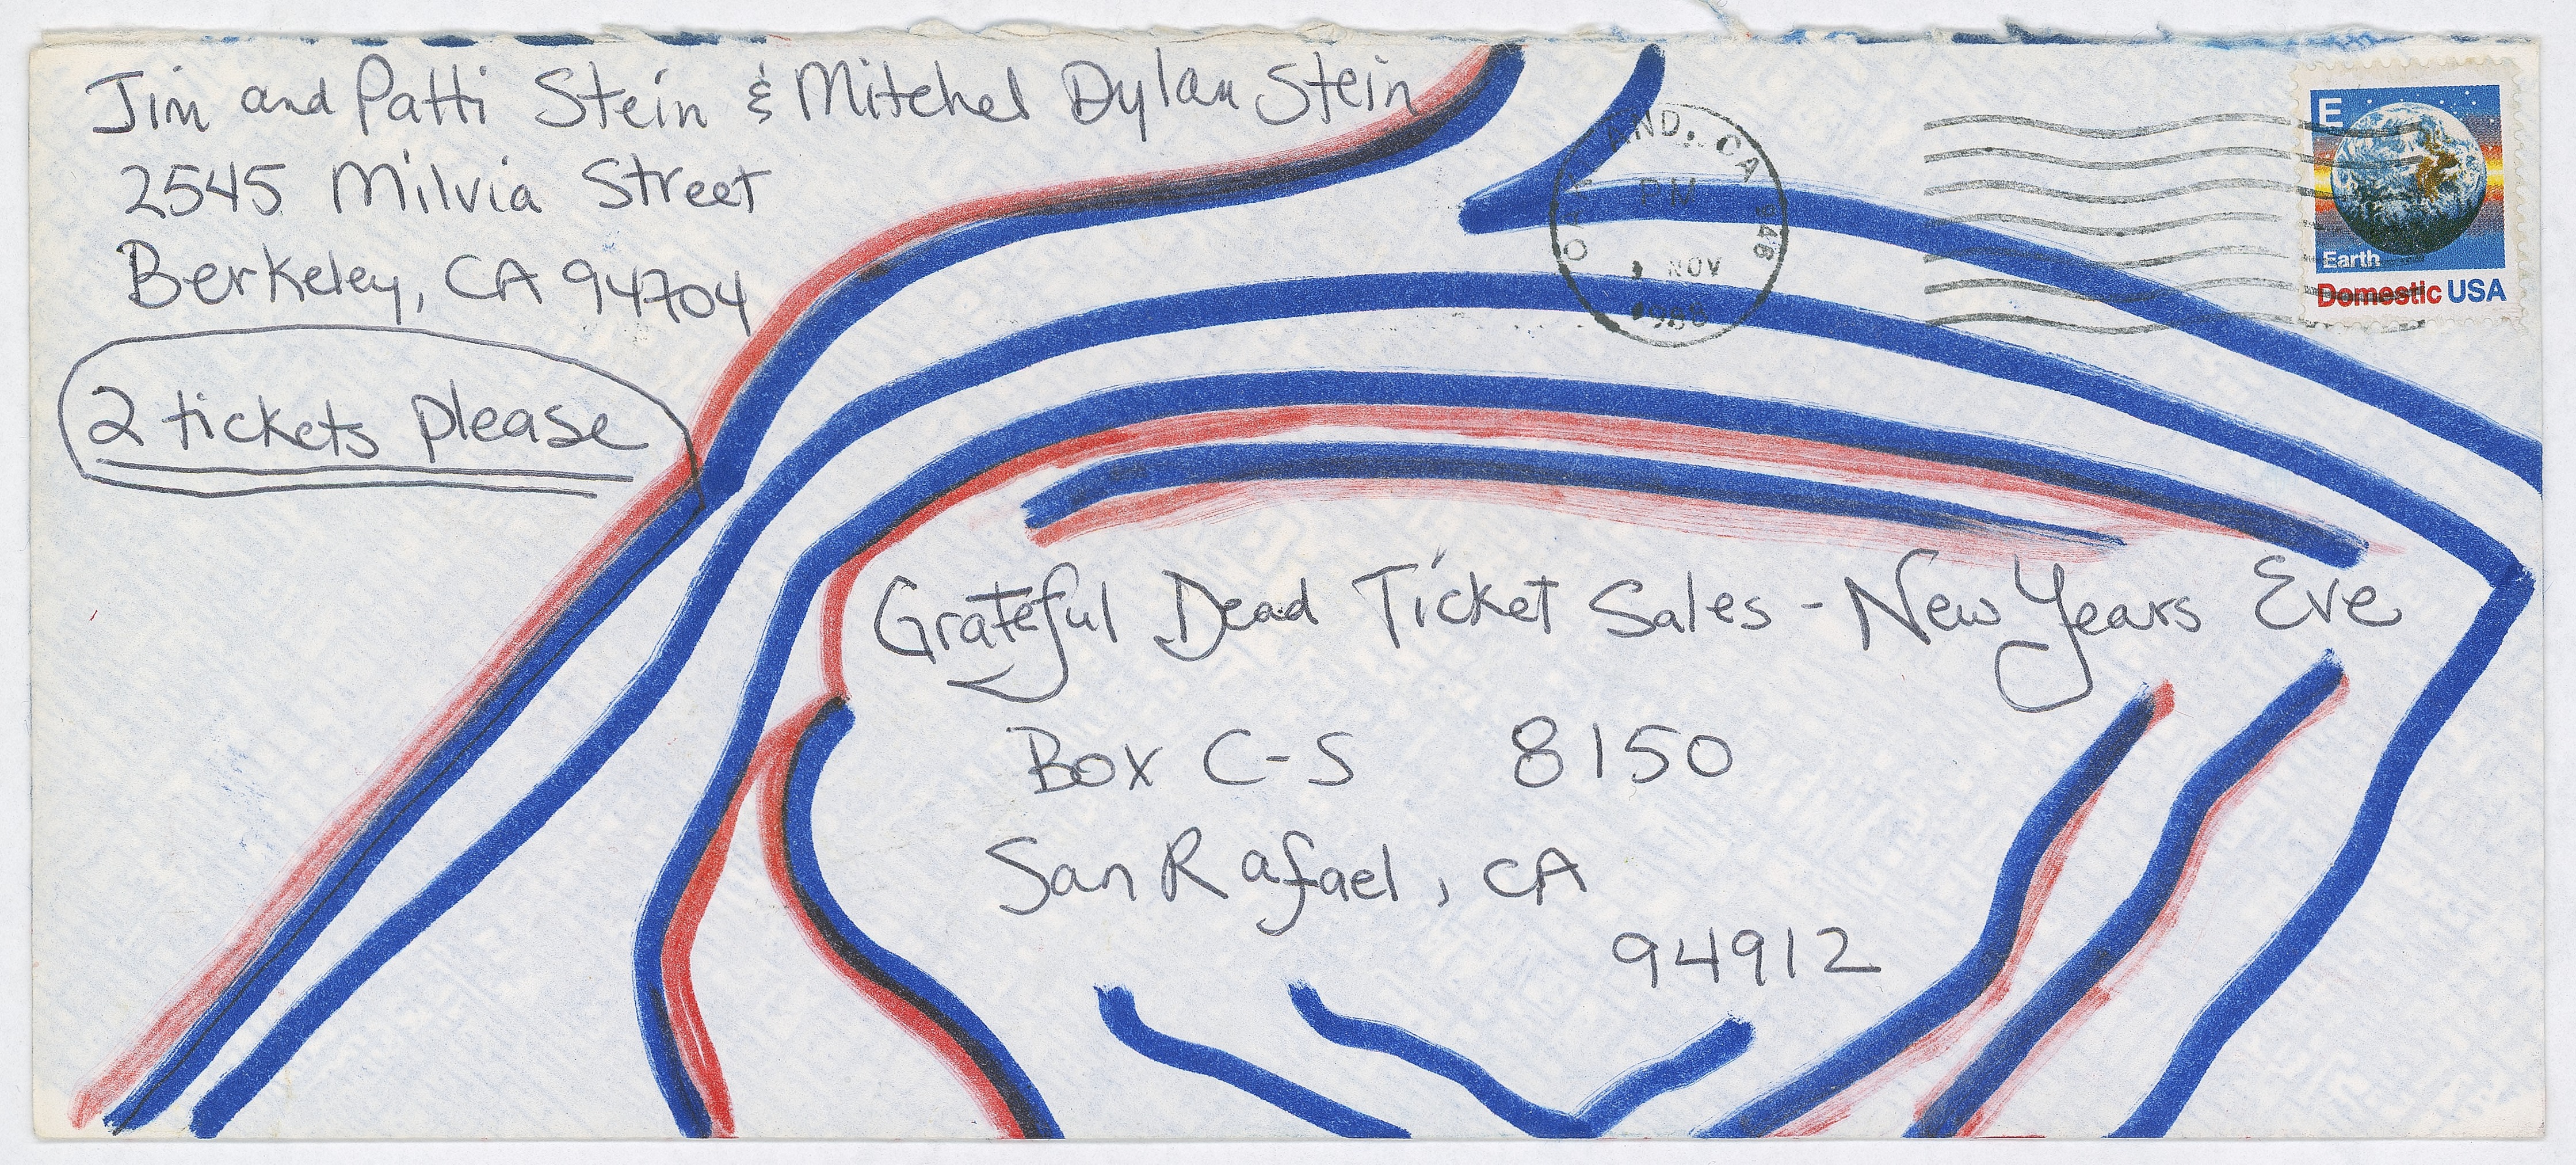 Jim and Patti Stein & Mitchel Dylan Stein
2545 Milvia Street
Berkeley, CA 94704
2 tickets please
AND, CA 946
PM
1 NOV
1988
E
Earth
Domestic USA
Grateful Dead Ticket Sales - New Years Eve
Box C-S 8150
San Rafael, CA
94912